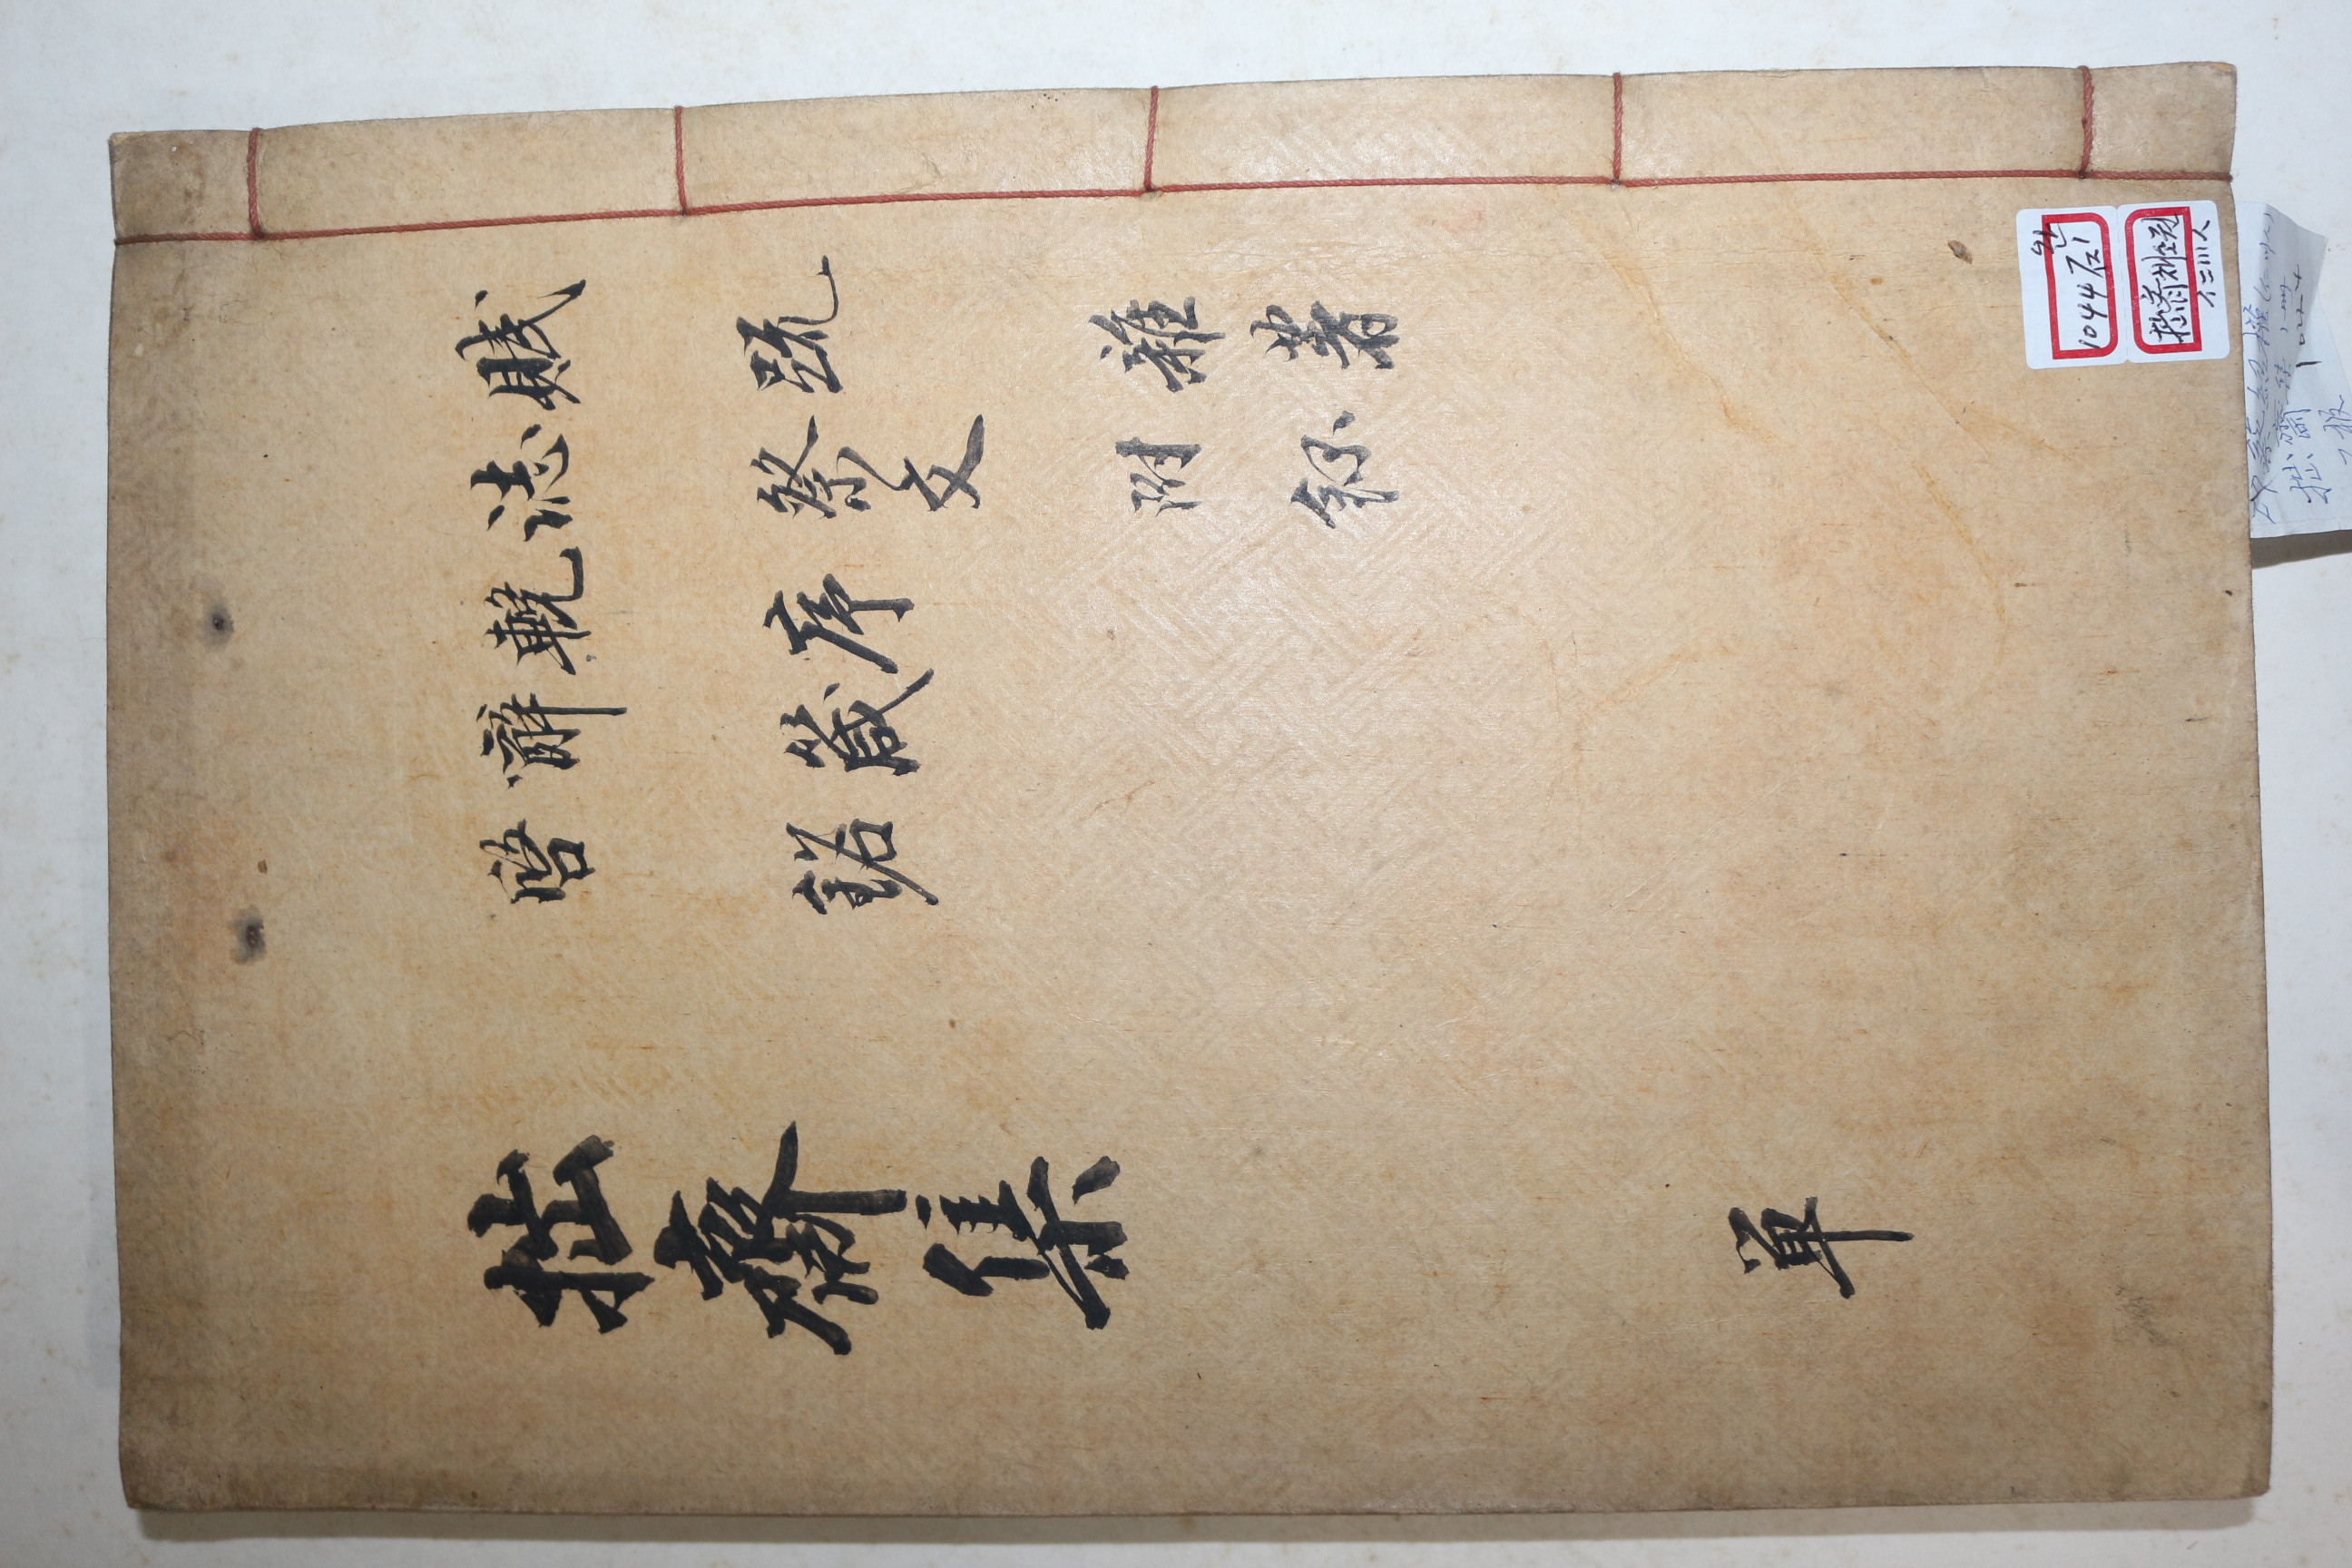 賦 疏 雜著
誌 祭文 附錄
輓 序
辭 箴
啓 銘
拙齋集 単
완
1044 石1
拙齋채소권
仁川人
拙齋集 1冊